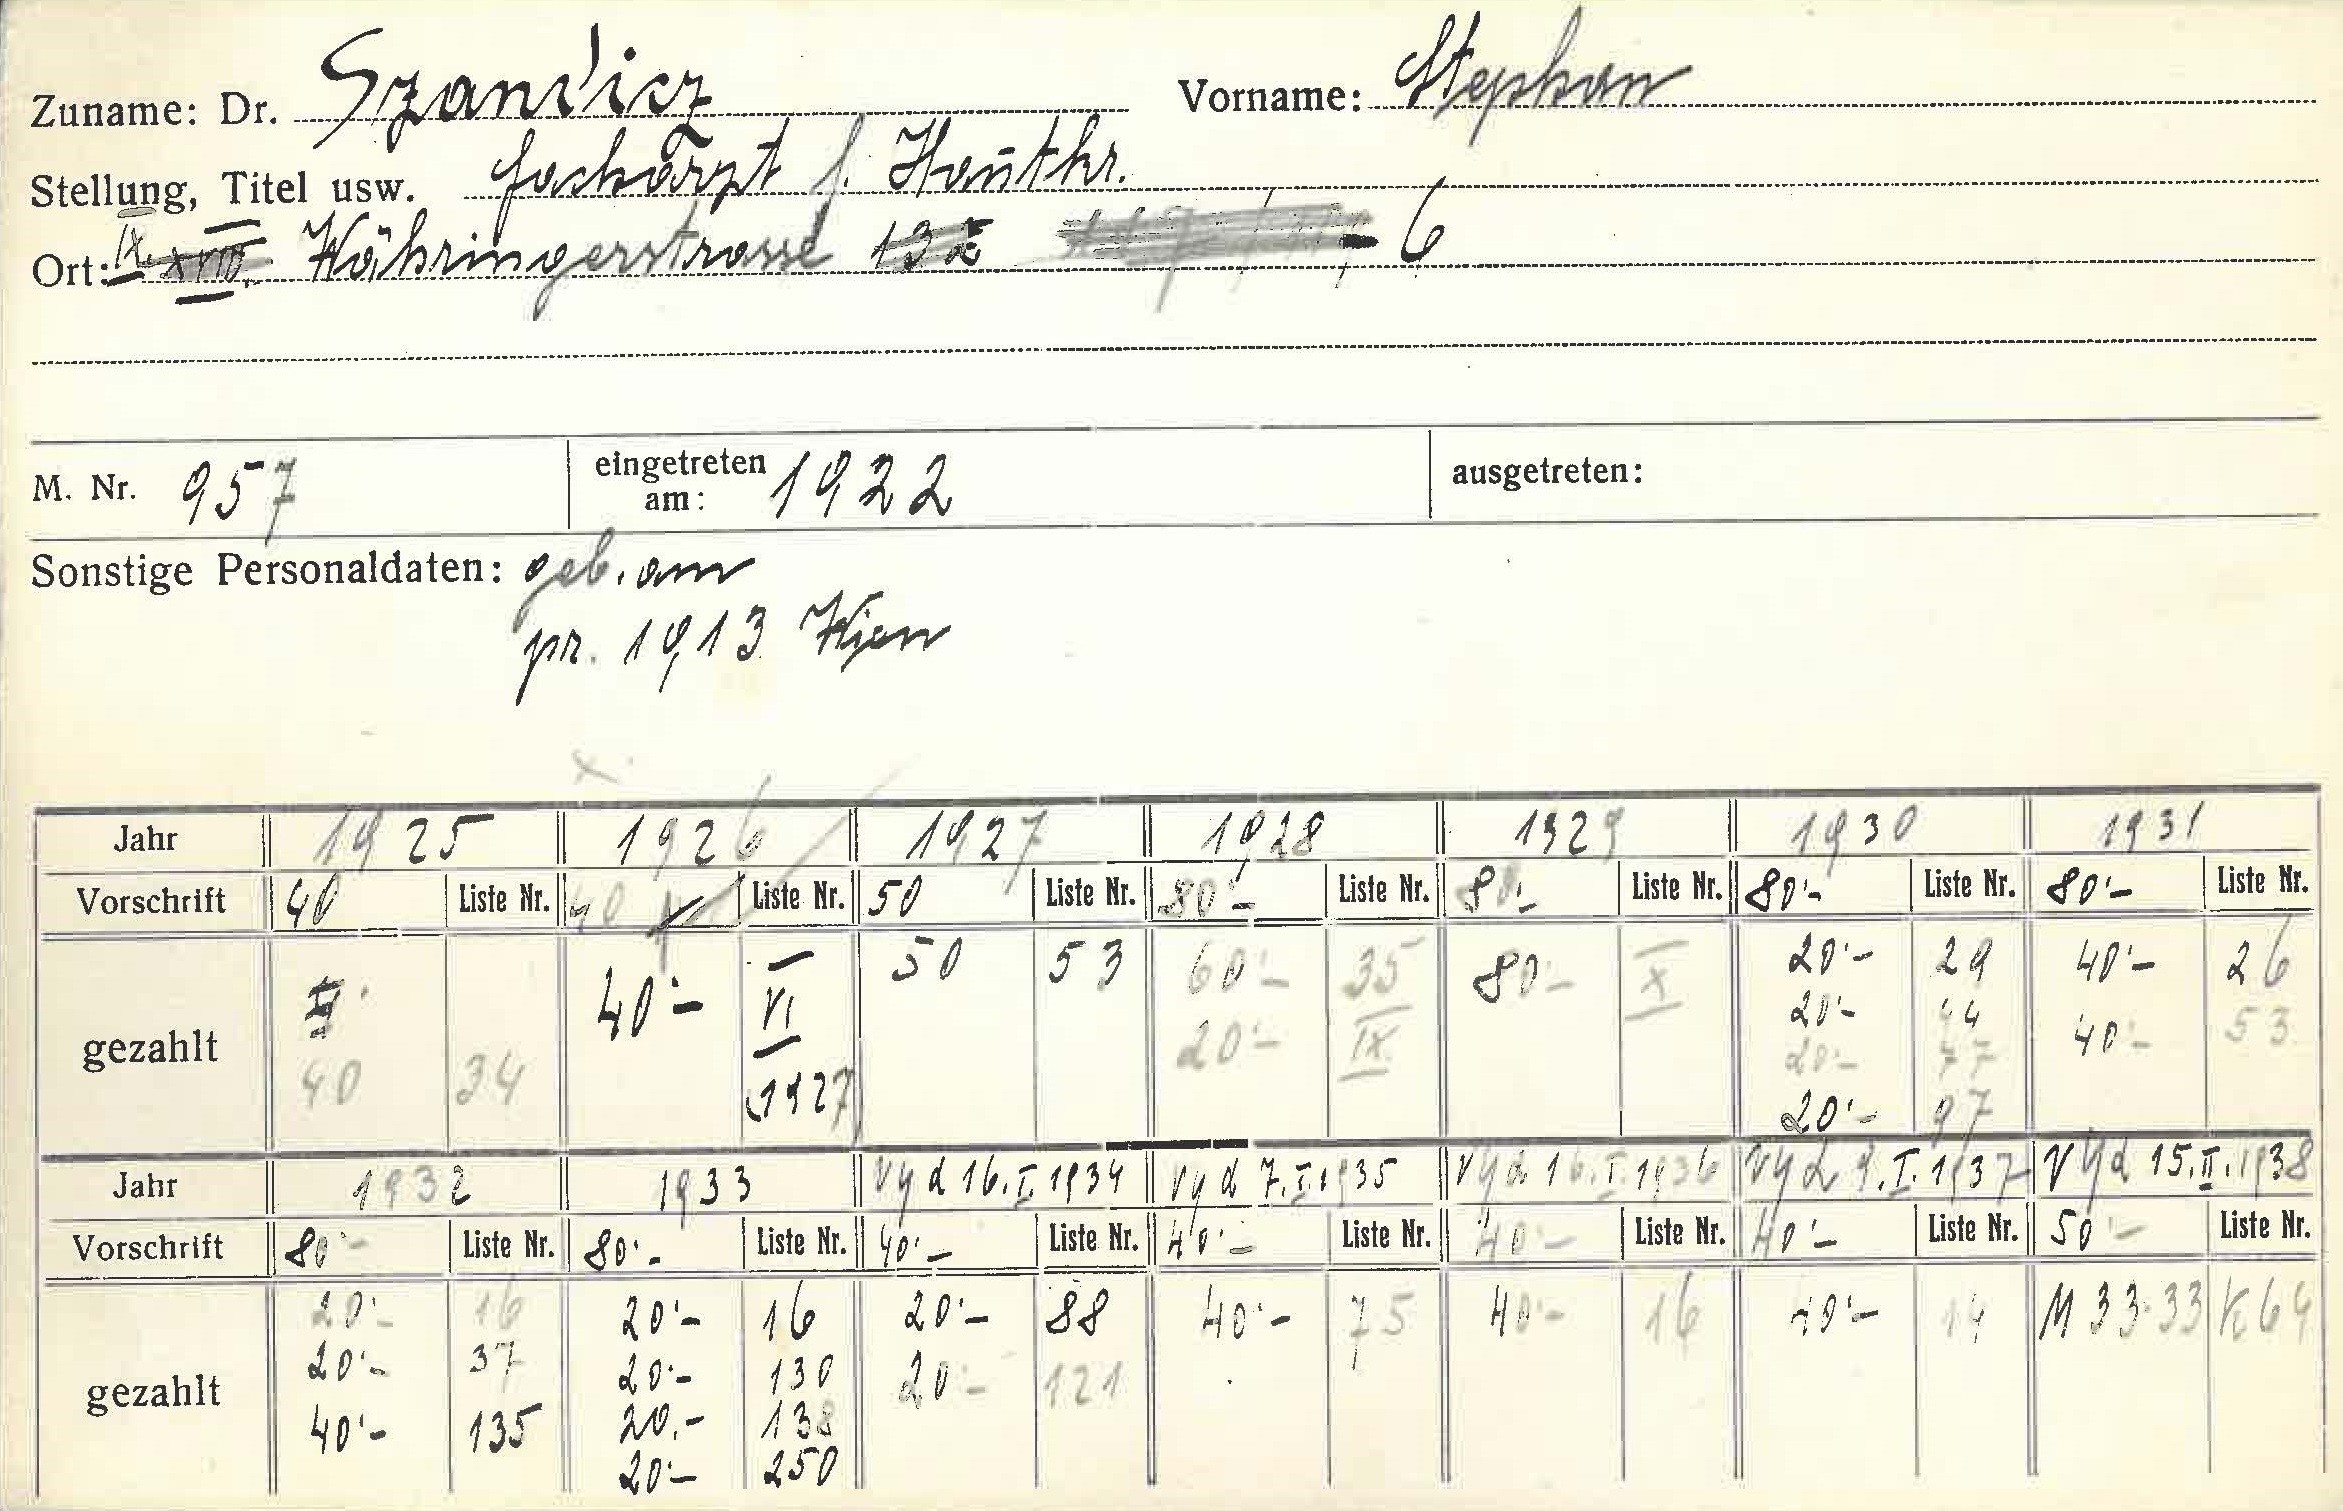 Zuname: Dr. Szanvicz Vorname: Stephan
Stellung, Titel usw. Facharzt f. Hautkr.
Ort: IX. XVIII. Währingerstrasse 132 6
M. Nr. 957 eingetreten am: 1922 ausgetreten:
Sonstige Personaldaten: geb. am
pr. 1913 Wien
Jahr 1925 1926 1927 1928 1929 1930 1931
Vorschrift 40 Liste Nr. 40 Liste Nr. 50 Liste Nr. 80'- Liste Nr. 80'- Liste Nr. 80'- Liste Nr. 80'- Liste Nr.
gezahlt 40'- VI 50 53 60'- 35 80'- X 20'- 29 40'- 26
20'- IX. 20'- 44 40'- 53
40 34 1927 20'- 77
20'- 97
Jahr 1932 1933 Vyd 16.I.1934 Vyd 7.I.1935 Vyd 16.I.1936 Vyd 9.I.1937 Vyd 15.II.1938
Vorschrift 80'- Liste Nr. 80'- Liste Nr. 40'- Liste Nr. 40'- Liste Nr. 40'- Liste Nr. 40'- Liste Nr. 50'- Liste Nr.
gezahlt 20'- 16 20'- 16 20'- 88 40'- 75 40'- 16 40'- 14 M 33·33 K 64
20'- 37 20'- 130 20'- 121
40'- 135 20.- 138
20'- 250